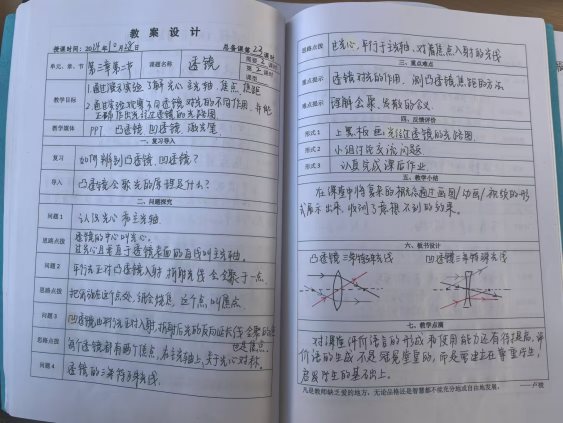 教案设计
授课时间：2024年10月28日 总备课第22课时
单元、章、节 第三章第二节 课题名称 透镜 需要2课时
第2课时
教学目标 1.通过演示实验了解光心、主光轴、焦点、焦距
2.通过实验观察不同透镜对光的不同作用，并能
正确作出光经过透镜的光路图
教学媒体 PPT 凸透镜 凹透镜 激光笔
一、复习导入
复习 如何辨别凸透镜、凹透镜？
导入 凸透镜会聚光的原理是什么？
二、问题探究
问题1 认识光心和主光轴
思路点拨 透镜的中心叫光心。
过光心且垂直于透镜表面的直线叫主光轴。
问题2 平行光正对凸透镜入射 折射光线会会聚于一点
思路点拨 把 放在这个点处，会 ，这个点叫焦点
问题3 凹透镜由平行光正对入射，折射后光的反向延长线会聚的点
也是焦点。
思路点拨 每个透镜都有两个焦点，在主光轴上，关于光心对称。
问题4 透镜的三条特殊光线
思路点拨 过光心，平行于主光轴，对着焦点入射的光线
三、重点难点
重点提示 透镜对光的作用，测凸透镜焦距的方法
难点提示 理解会聚、发散的含义
四、反馈评价
形式1 上黑板画光经过透镜的光路图
形式2 小组讨论交流问题
形式3 认真完成课后作业
五、教学小结
在课堂中将抽象的概念通过画图/动画/视频的形
式展示出来，收到了意想不到的效果。
六、板书设计
凸透镜三条特殊光线 凹透镜三条特殊光线
七、教学点滴
对课堂评价语言的形成和使用能力还有待提高，评
价语的生成不是 的，而是要建立在尊重学生，
启发学生的基础上。
凡是教师缺乏爱的地方，无论品格还是智慧都不能充分地或自由地发展。 ——卢梭